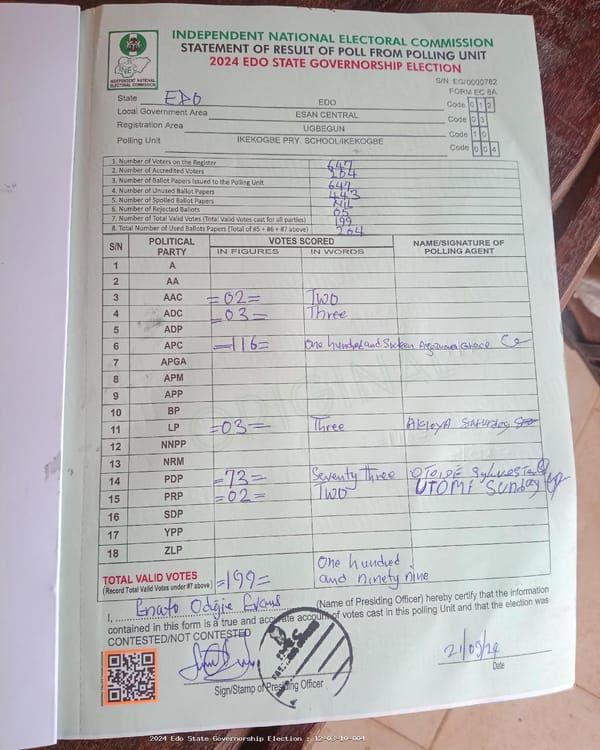 INDEPENDENT NATIONAL ELECTORAL COMMISSION
STATEMENT OF RESULT OF POLL FROM POLLING UNIT
2024 EDO STATE GOVERNORSHIP ELECTION
INEC
INDEPENDENT NATIONAL
ELECTORAL COMMISSION
S/N: EG/0000782
FORM EC 8A
State EDO EDO Code 0 1 2
Local Government Area ESAN CENTRAL Code 0 3
Registration Area UGBEGUN Code 1 0
Polling Unit IKEKOGBE PRY. SCHOOL/IKEKOGBE Code 0 0 4
1. Number of Voters on the Register 647
2. Number of Accredited Voters 204
3. Number of Ballot Papers Issued to the Polling Unit 647
4. Number of Unused Ballot Papers 443
5. Number of Spoiled Ballot Papers NIL
6. Number of Rejected Ballots 05
7. Number of Total Valid Votes (Total Valid Votes cast for all parties) 199
8. Total Number of Used Ballots Papers (Total of #5 + #6 + #7 above) 204
S/N POLITICAL PARTY VOTES SCORED NAME/SIGNATURE OF POLLING AGENT
IN FIGURES IN WORDS
1 A
2 AA
3 AAC =02= Two
4 ADC =03= Three
5 ADP
6 APC =116= One hundred and Sixteen Grace
7 APGA
8 APM
9 APP
10 BP
11 LP =03= Three Saturday
12 NNPP
13 NRM
14 PDP =73= Seventy Three Sylvester
15 PRP =02= TWO UTOMI SUNDAY
16 SDP
17 YPP
18 ZLP
TOTAL VALID VOTES =199= One hundred and ninety nine
(Record Total Valid Votes under #7 above)
I, Odigie Evans (Name of Presiding Officer) hereby certify that the information
contained in this form is a true and accurate account of votes cast in this polling Unit and that the election was
CONTESTED/NOT CONTESTED
21/09/24
Sign/Stamp of Presiding Officer
Date
2024 Edo State Governorship Election : 12-03-10-004